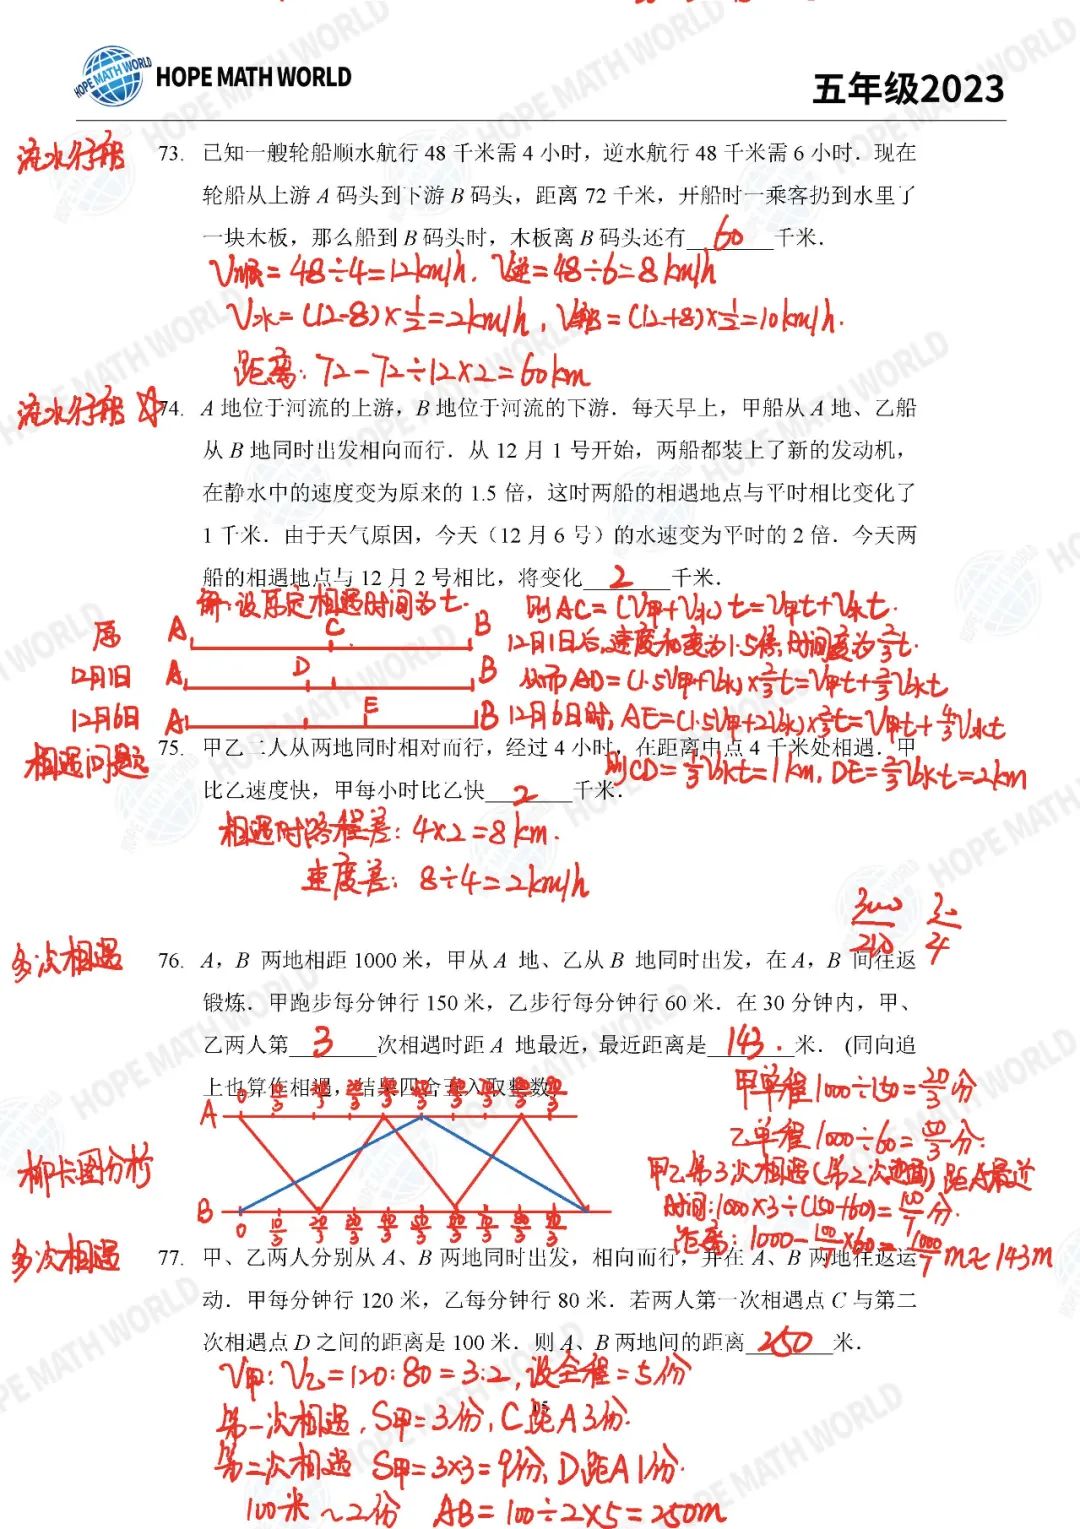 HOPE MATH WORLD
五年级2023
流水行船
73. 已知一艘轮船顺水航行 48 千米需 4 小时，逆水航行 48 千米需 6 小时．现在
轮船从上游 A 码头到下游 B 码头，距离 72 千米，开船时一乘客扔到水里了
一块木板，那么船到 B 码头时，木板离 B 码头还有 60 千米．
V顺=48÷4=12km/h. V逆=48÷6=8km/h
V水=(12-8)×1/2=2km/h, V船=(12+8)×1/2=10km/h.
距离: 72-72÷12×2=60km
流水行船
74. A 地位于河流的上游，B 地位于河流的下游．每天早上，甲船从 A 地、乙船
从 B 地同时出发相向而行．从 12 月 1 号开始，两船都装上了新的发动机，
在静水中的速度变为原来的 1.5 倍，这时两船的相遇地点与平时相比变化了
1 千米．由于天气原因，今天（12 月 6 号）的水速变为平时的 2 倍．今天两
船的相遇地点与 12 月 2 号相比，将变化 2 千米．
解:设原定相遇时间为t.
则AC=(V甲+V水)t=V甲t+V水t.
原 A C B
12月1日后,速度和变为1.5倍,时间变为2/3t.
12月1日 A D B
从而AD=(1.5V甲+V水)×2/3t=V甲t+2/3V水t
12月6日 A E B
12月6日时, AE=(1.5V甲+2V水)×2/3t=V甲t+4/3V水t
则CD=1/3V水t=1km, DE=2/3V水t=2km
相遇问题
75. 甲乙二人从两地同时相对而行，经过 4 小时，在距离中点 4 千米处相遇．甲
比乙速度快，甲每小时比乙快 2 千米．
相遇时路程差: 4×2=8km.
速度差: 8÷4=2km/h
多次相遇
76. A，B 两地相距 1000 米，甲从 A 地、乙从 B 地同时出发，在 A，B 间往返
锻炼．甲跑步每分钟行 150 米，乙步行每分钟行 60 米．在 30 分钟内，甲、
乙两人第 3 次相遇时距 A 地最近，最近距离是 143 米．（同向追
上也算作相遇，结果四舍五入取整数）
甲单程1000÷150=20/3分
A
乙单程1000÷60=50/3分.
柳卡图分析
甲乙第3次相遇(第2次迎面)距A最近
B
时间:1000×3÷(150+60)=100/7分.
距离: 1000-100/7×60=1000/7m≈143m
多次相遇
77. 甲、乙两人分别从 A、B 两地同时出发，相向而行，并在 A、B 两地往返运
动．甲每分钟行 120 米，乙每分钟行 80 米．若两人第一次相遇点 C 与第二
次相遇点 D 之间的距离是 100 米．则 A、B 两地间的距离 250 米．
V甲:V乙=120:80=3:2,设全程=5份
第一次相遇, S甲=3份, C距A3份.
15
第二次相遇 S甲=3×3=9份, D距A1份.
100米~2份 AB=100÷2×5=250m